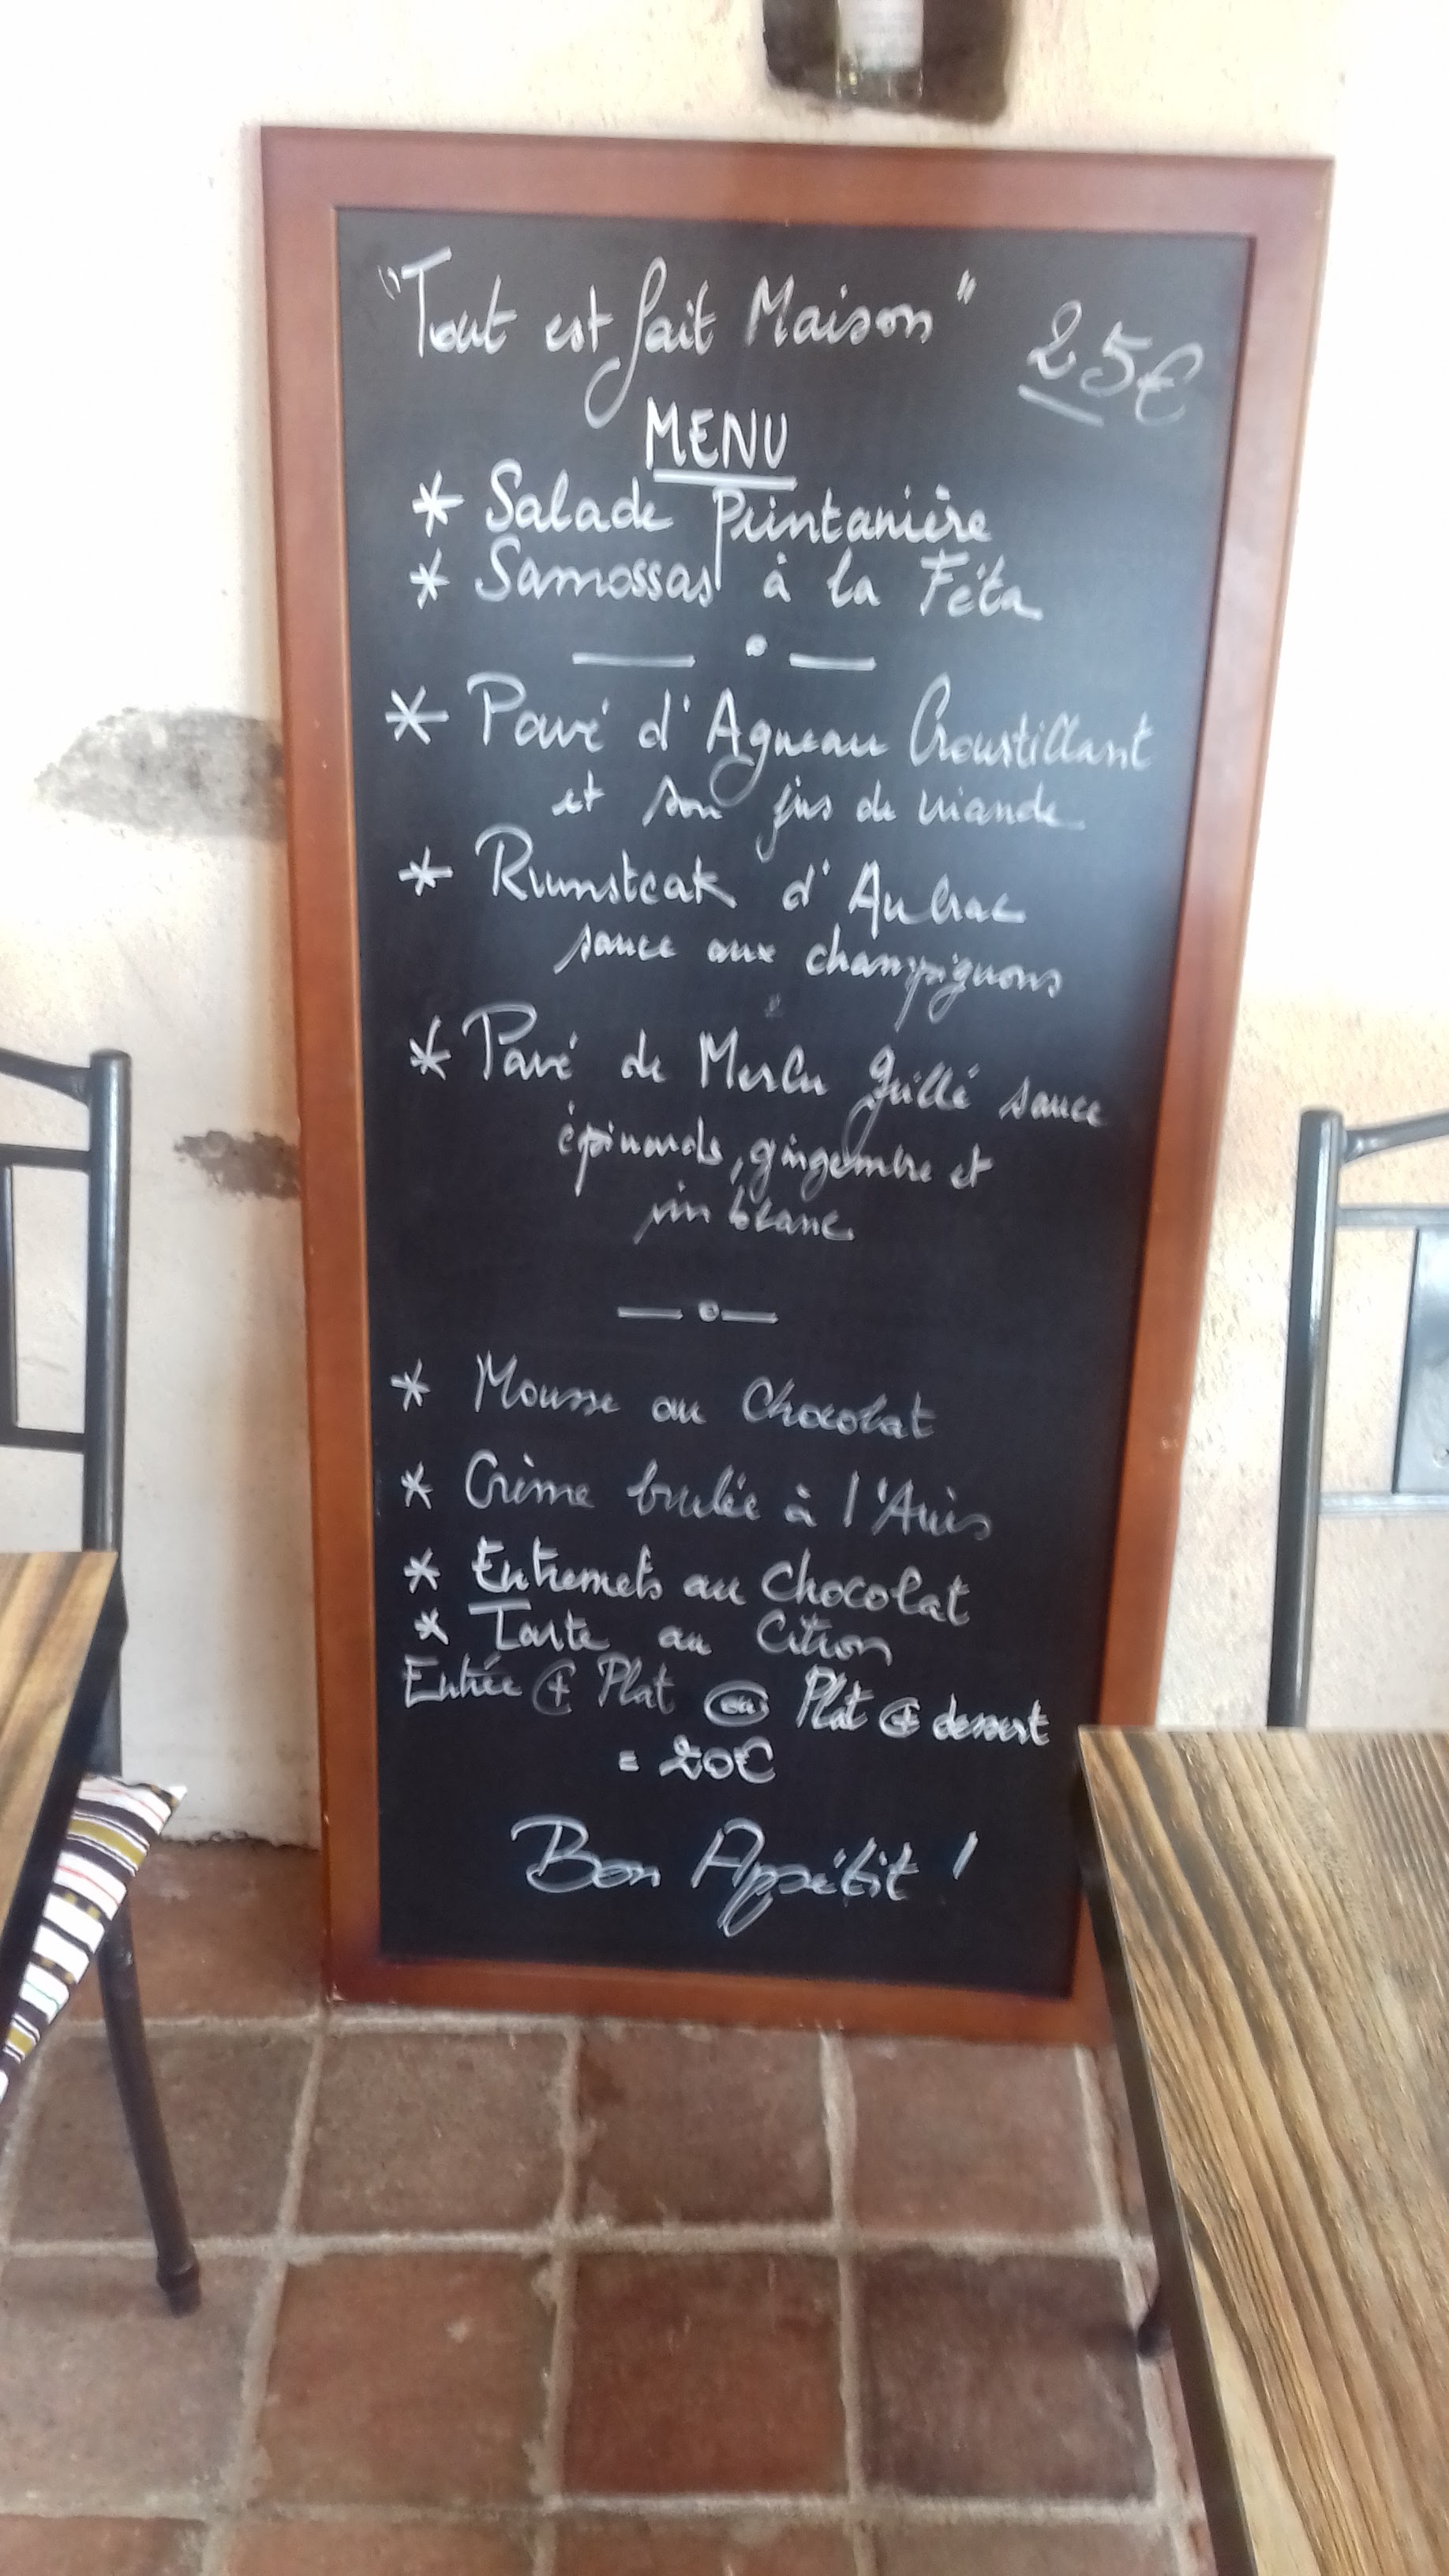 "Tout est fait Maison" 25€
MENU
* Salade Printanière
* Samossas à la Féta
* Pavé d'Agneau Croustillant
et son jus de viande
* Rumsteak d'Aubrac
sauce aux champignons
* Pavé de Merlu Grillé sauce
épinards, gingembre et
vin blanc
* Mousse au Chocolat
* Crème brulée à l'Anis
* Entremets au Chocolat
* Tarte au Citron
Entrée + Plat ou Plat + dessert
= 20€
Bon Appétit !